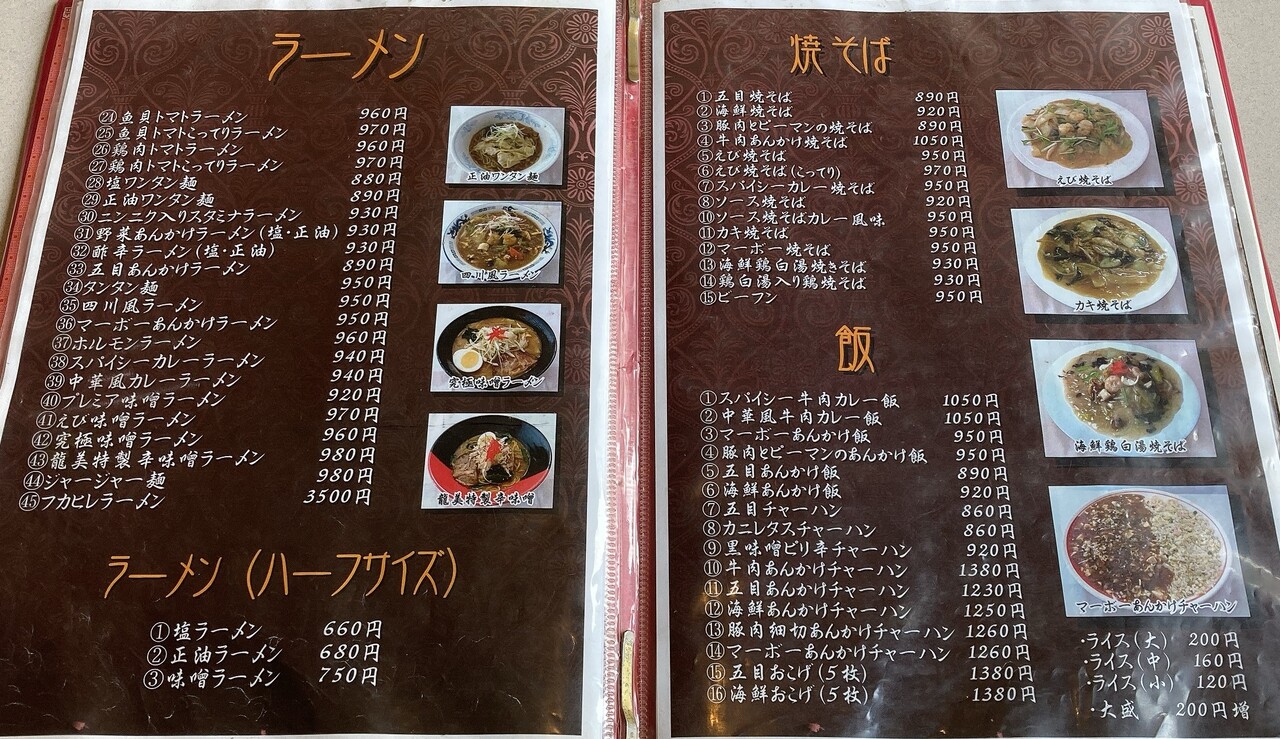 ラーメン
㉔魚貝トマトラーメン 960円
㉕魚貝トマトこってりラーメン 970円
㉖鶏肉トマトラーメン 960円
㉗鶏肉トマトこってりラーメン 970円
㉘塩ワンタン麺 880円
㉙正油ワンタン麺 890円
㉚ニンニク入りスタミナラーメン 930円
㉛野菜あんかけラーメン(塩・正油) 930円
㉜酢辛ラーメン(塩・正油) 930円
㉝五目あんかけラーメン 890円
㉞タンタン麺 950円
㉟四川風ラーメン 950円
㊱マーボーあんかけラーメン 950円
㊲ホルモンラーメン 960円
㊳スパイシーカレーラーメン 940円
㊴中華風カレーラーメン 940円
㊵プレミア味噌ラーメン 920円
㊶えび味噌ラーメン 970円
㊷究極味噌ラーメン 960円
㊸龍美特製辛味噌ラーメン 980円
㊹ジャージャー麺 980円
㊺フカヒレラーメン 3500円
正油ワンタン麺
四川風ラーメン
究極味噌ラーメン
龍美特製辛味噌
ラーメン(ハーフサイズ)
①塩ラーメン 660円
②正油ラーメン 680円
③味噌ラーメン 750円
焼そば
①五目焼そば 890円
②海鮮焼そば 920円
③豚肉とピーマンの焼そば 890円
④牛肉あんかけ焼そば 1050円
⑤えび焼そば 950円
⑥えび焼そば(こってり) 970円
⑦スパイシーカレー焼そば 950円
⑧ソース焼そば 920円
⑩ソース焼そばカレー風味 950円
⑪カキ焼そば 950円
⑫マーボー焼そば 950円
⑬海鮮鶏白湯焼きそば 930円
⑭鶏白湯入り鶏焼そば 930円
⑮ビーフン 950円
えび焼そば
カキ焼そば
海鮮鶏白湯焼そば
マーボーあんかけチャーハン
飯
①スパイシー牛肉カレー飯 1050円
②中華風牛肉カレー飯 1050円
③マーボーあんかけ飯 950円
④豚肉とピーマンのあんかけ飯 950円
⑤五目あんかけ飯 890円
⑥海鮮あんかけ飯 920円
⑦五目チャーハン 860円
⑧カニレタスチャーハン 860円
⑨黒味噌ピリ辛チャーハン 920円
⑩牛肉あんかけチャーハン 1380円
⑪五目あんかけチャーハン 1230円
⑫海鮮あんかけチャーハン 1250円
⑬豚肉細切あんかけチャーハン 1260円
⑭マーボーあんかけチャーハン 1260円
⑮五目おこげ(5枚) 1380円
⑯海鮮おこげ(5枚) 1380円
・ライス(大) 200円
・ライス(中) 160円
・ライス(小) 120円
・大盛 200円増